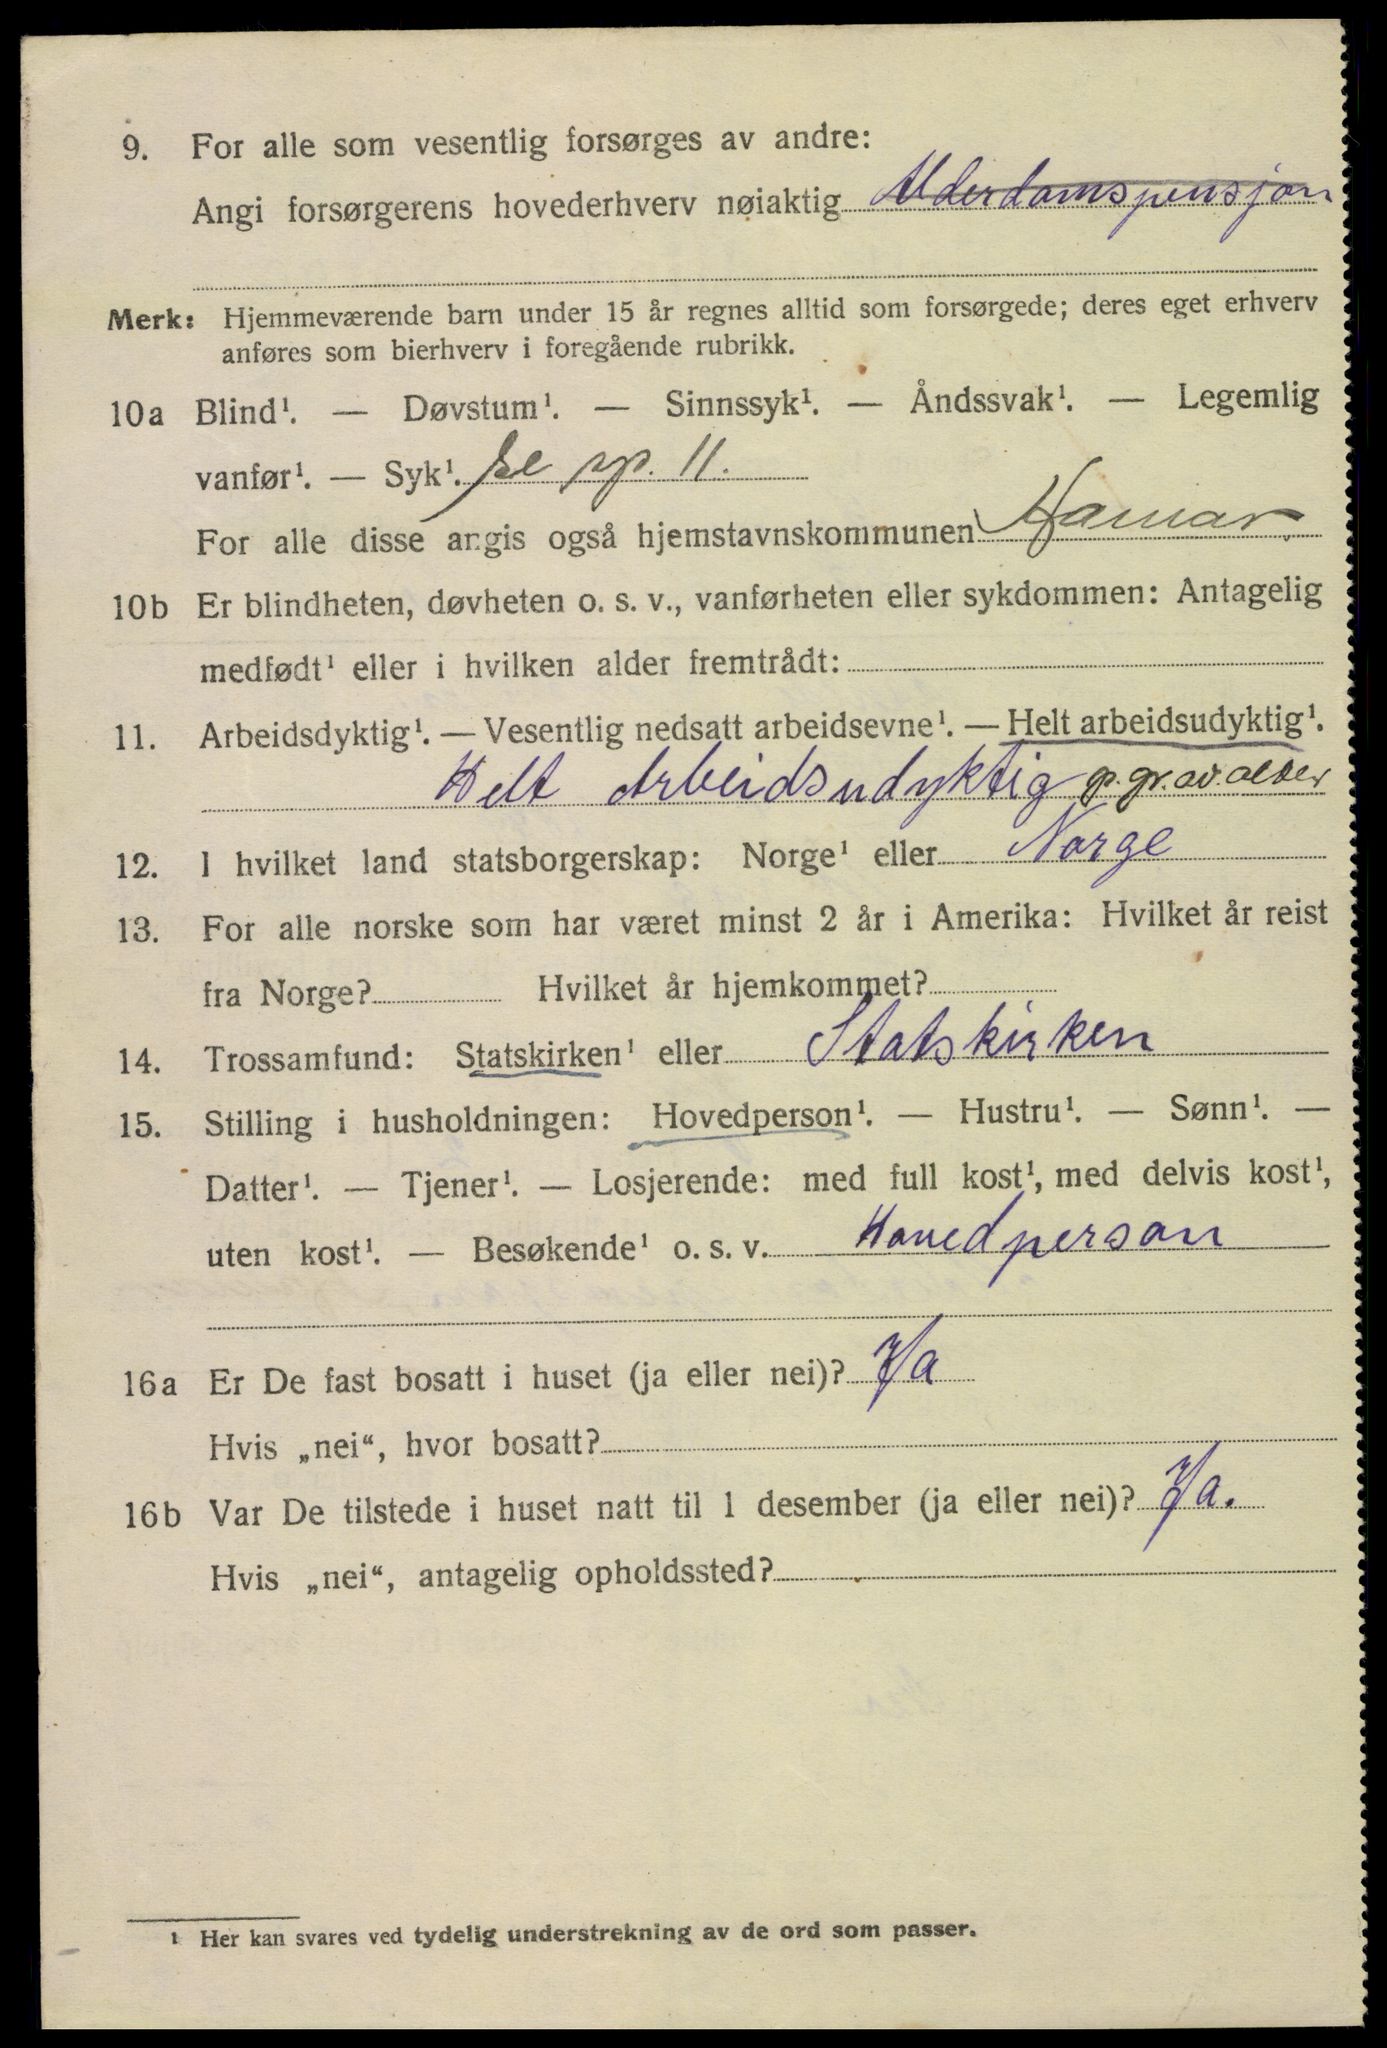 9. For alle som vesentlig forsørges av andre:
Angi forsørgerens hovederhverv nøiaktig Alderdomspensjon
Merk: Hjemmeværende barn under 15 år regnes alltid som forsørgede; deres eget erhverv
anføres som bierhverv i foregående rubrikk.
10a Blind¹. — Døvstum¹. — Sinnssyk¹. — Åndssvak¹. — Legemlig
vanfør¹. — Syk¹. se sp. 11.
For alle disse angis også hjemstavnskommunen Hamar
10b Er blindheten, døvheten o. s. v., vanførheten eller sykdommen: Antagelig
medfødt¹ eller i hvilken alder fremtrådt:
11. Arbeidsdyktig¹. — Vesentlig nedsatt arbeidsevne¹. — Helt arbeidsudyktig¹.
Helt Arbeidsudyktig p. gr. av. alder
12. I hvilket land statsborgerskap: Norge¹ eller Norge
13. For alle norske som har været minst 2 år i Amerika: Hvilket år reist
fra Norge? Hvilket år hjemkommet?
14. Trossamfund: Statskirken¹ eller Statskirken
15. Stilling i husholdningen: Hovedperson¹. — Hustru¹. — Sønn¹. —
Datter¹. — Tjener¹. — Losjerende: med full kost¹, med delvis kost¹,
uten kost¹. — Besøkende¹ o. s. v. Hovedperson
16a Er De fast bosatt i huset (ja eller nei)? Ja
Hvis „nei“, hvor bosatt?
16b Var De tilstede i huset natt til 1 desember (ja eller nei)? Ja.
Hvis „nei“, antagelig opholdssted?
¹ Her kan svares ved tydelig understrekning av de ord som passer.